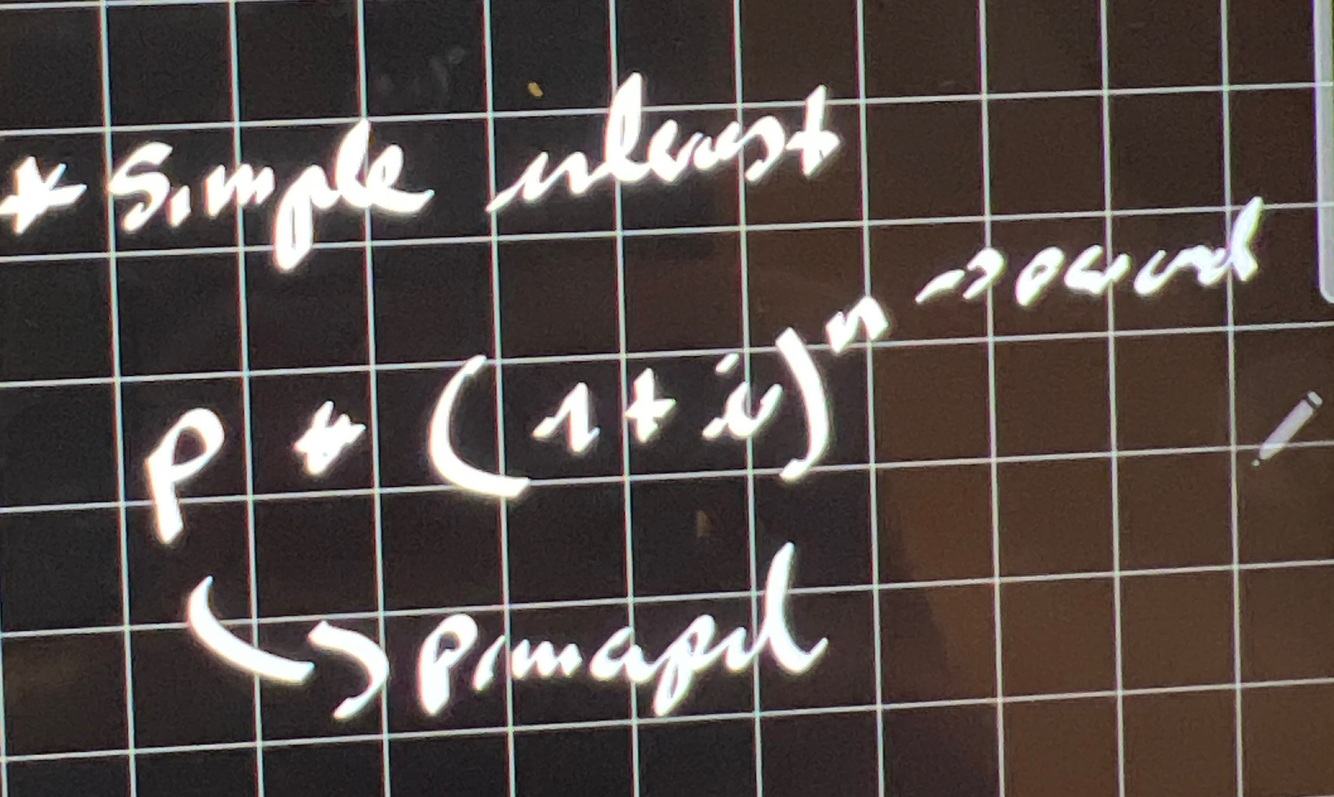 * Simple interest
P * (1 + i)^n → period
↳ principal